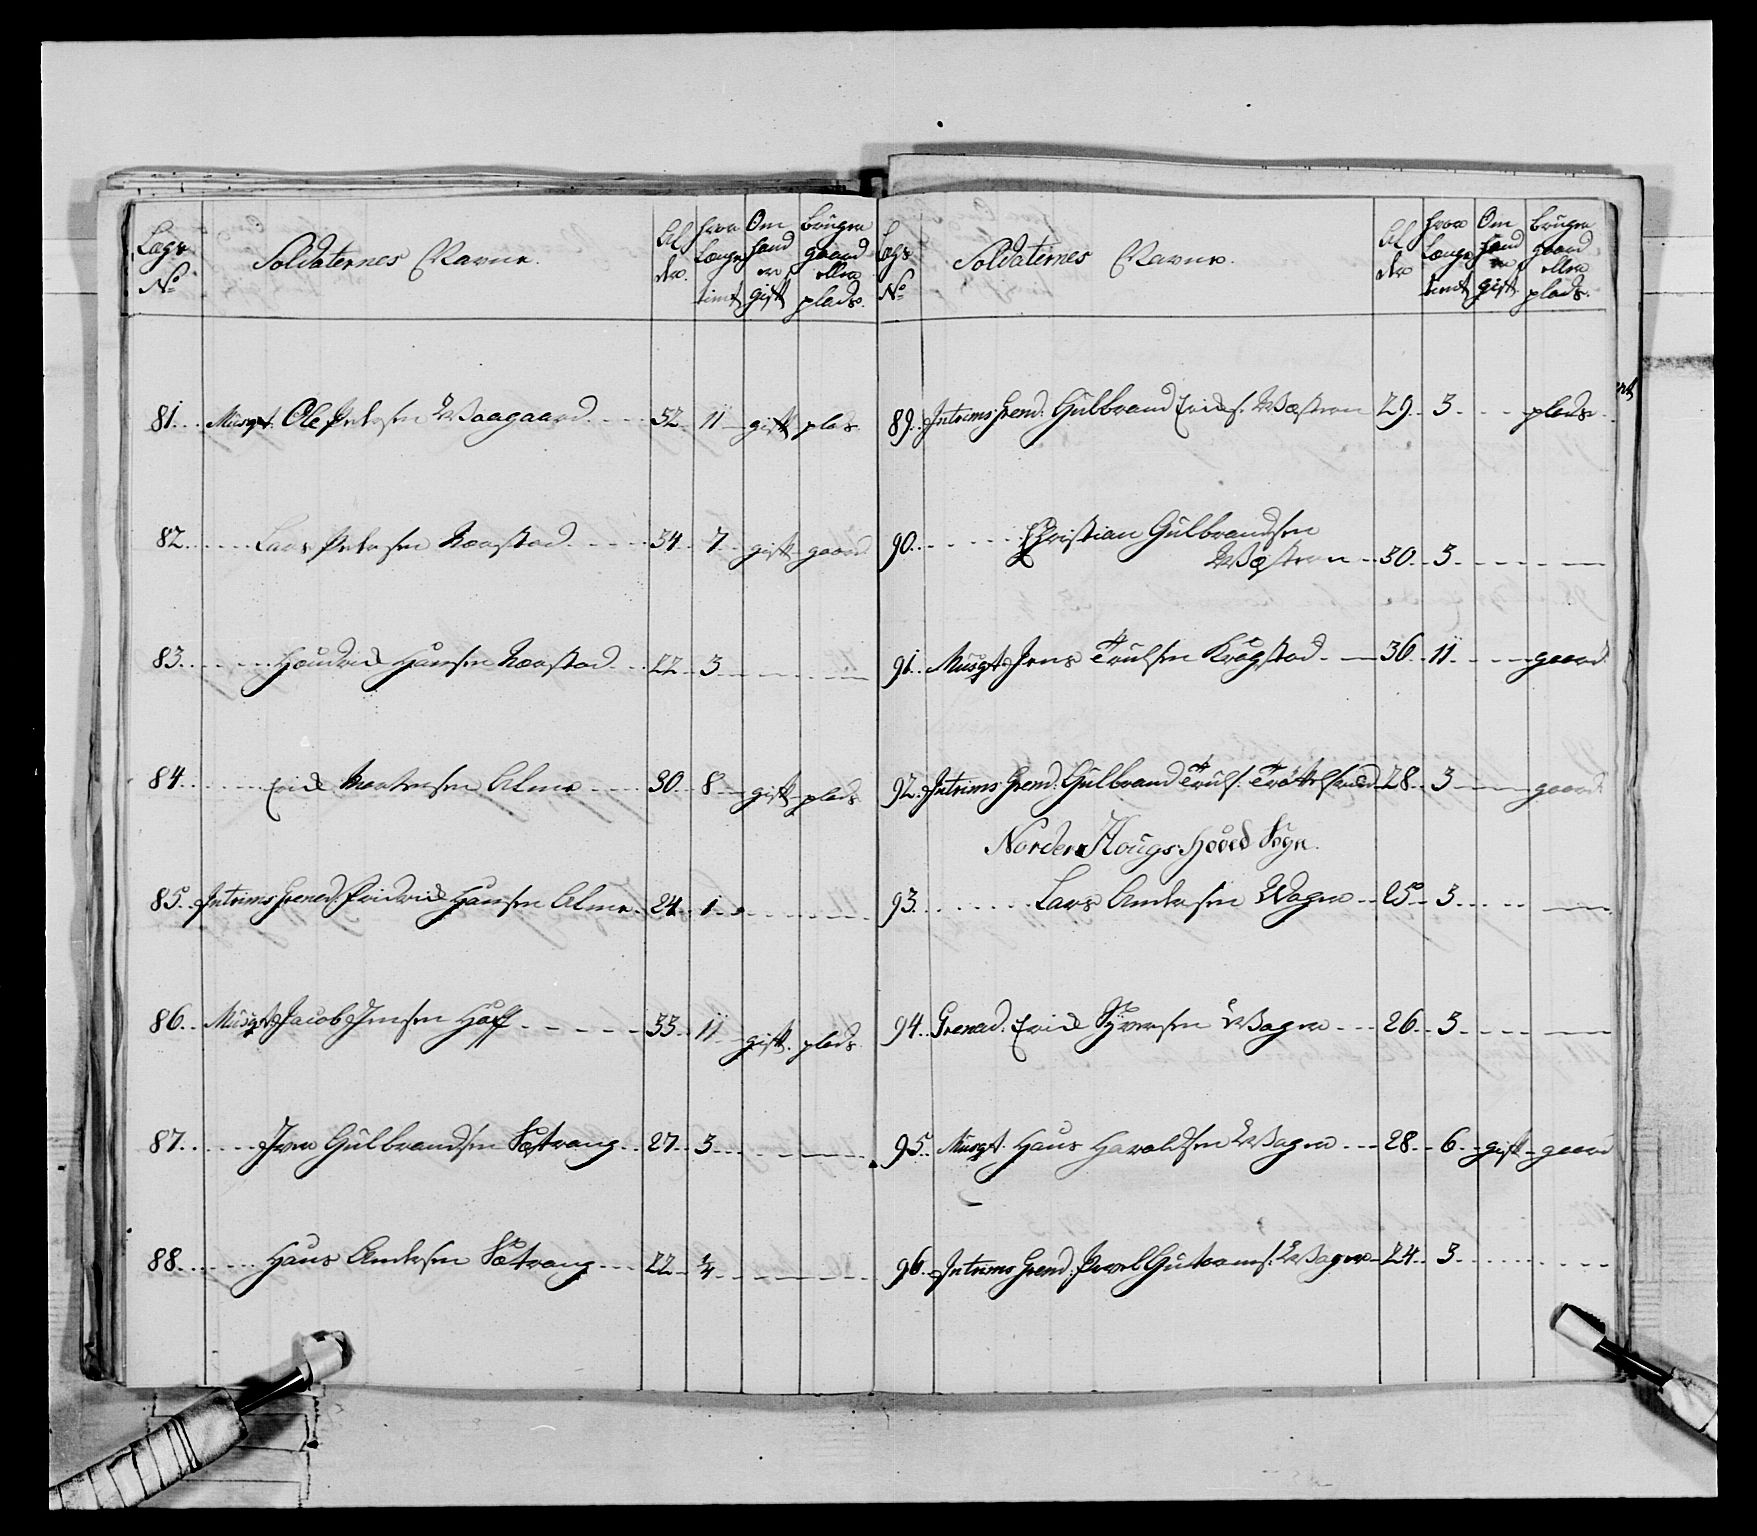 Lægs No Soldaternes Navne. Al der. hvor Længe tient Om hand er gift bruger gaard eller plads.
81. Musqt. Ole Pedersen Waagaard 32 11 gift plas
82. Lars Pedersen Narstad 34 7 gift gaard
83. Hansen Narstad 22 3
84. Erich Mortensen Alme 30 8 gift plads
85. Intrims Grenad. Fridrich Hansen Alme 24 1
86. Musqt Jacob Jensen Hoff 33 11 gift plads
87. Iver Gulbrandsen Sætrang 27 3
88. Hans Andersen Sætrang 22 3/4
Lægs No Soldaternes Navne. Al der hvor Længe tient Om hand er gift bruger gaard eller plads.
89. Intrims Grend. Gulbrand Erichs. Wæstern 29 3 plads
90. Christian Gulbrandsen
Wæstern 30 3
91. Musqt Jens Trulsen Krogstad 36 11 gaard
92. Intrims Grend. Gulbrand Truls. Trøttelsrud 28 3 gaard
Norder Hougs-hoved Sogn.
93. Lars Andersen Wager 25 3
94. Grenad. Erich Syversen Wager 26 3
95. Musqt Hans Haroldsen Wager 28 6 gift gaard
96. Intrims Grend. Povel Wager 24 3